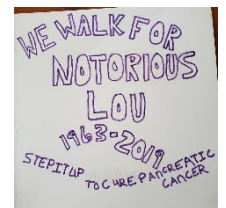 WE WALK FOR
NOTORIOUS
LOU
1963-2019
STEP IT UP
TO CURE PANCREATIC
CANCER